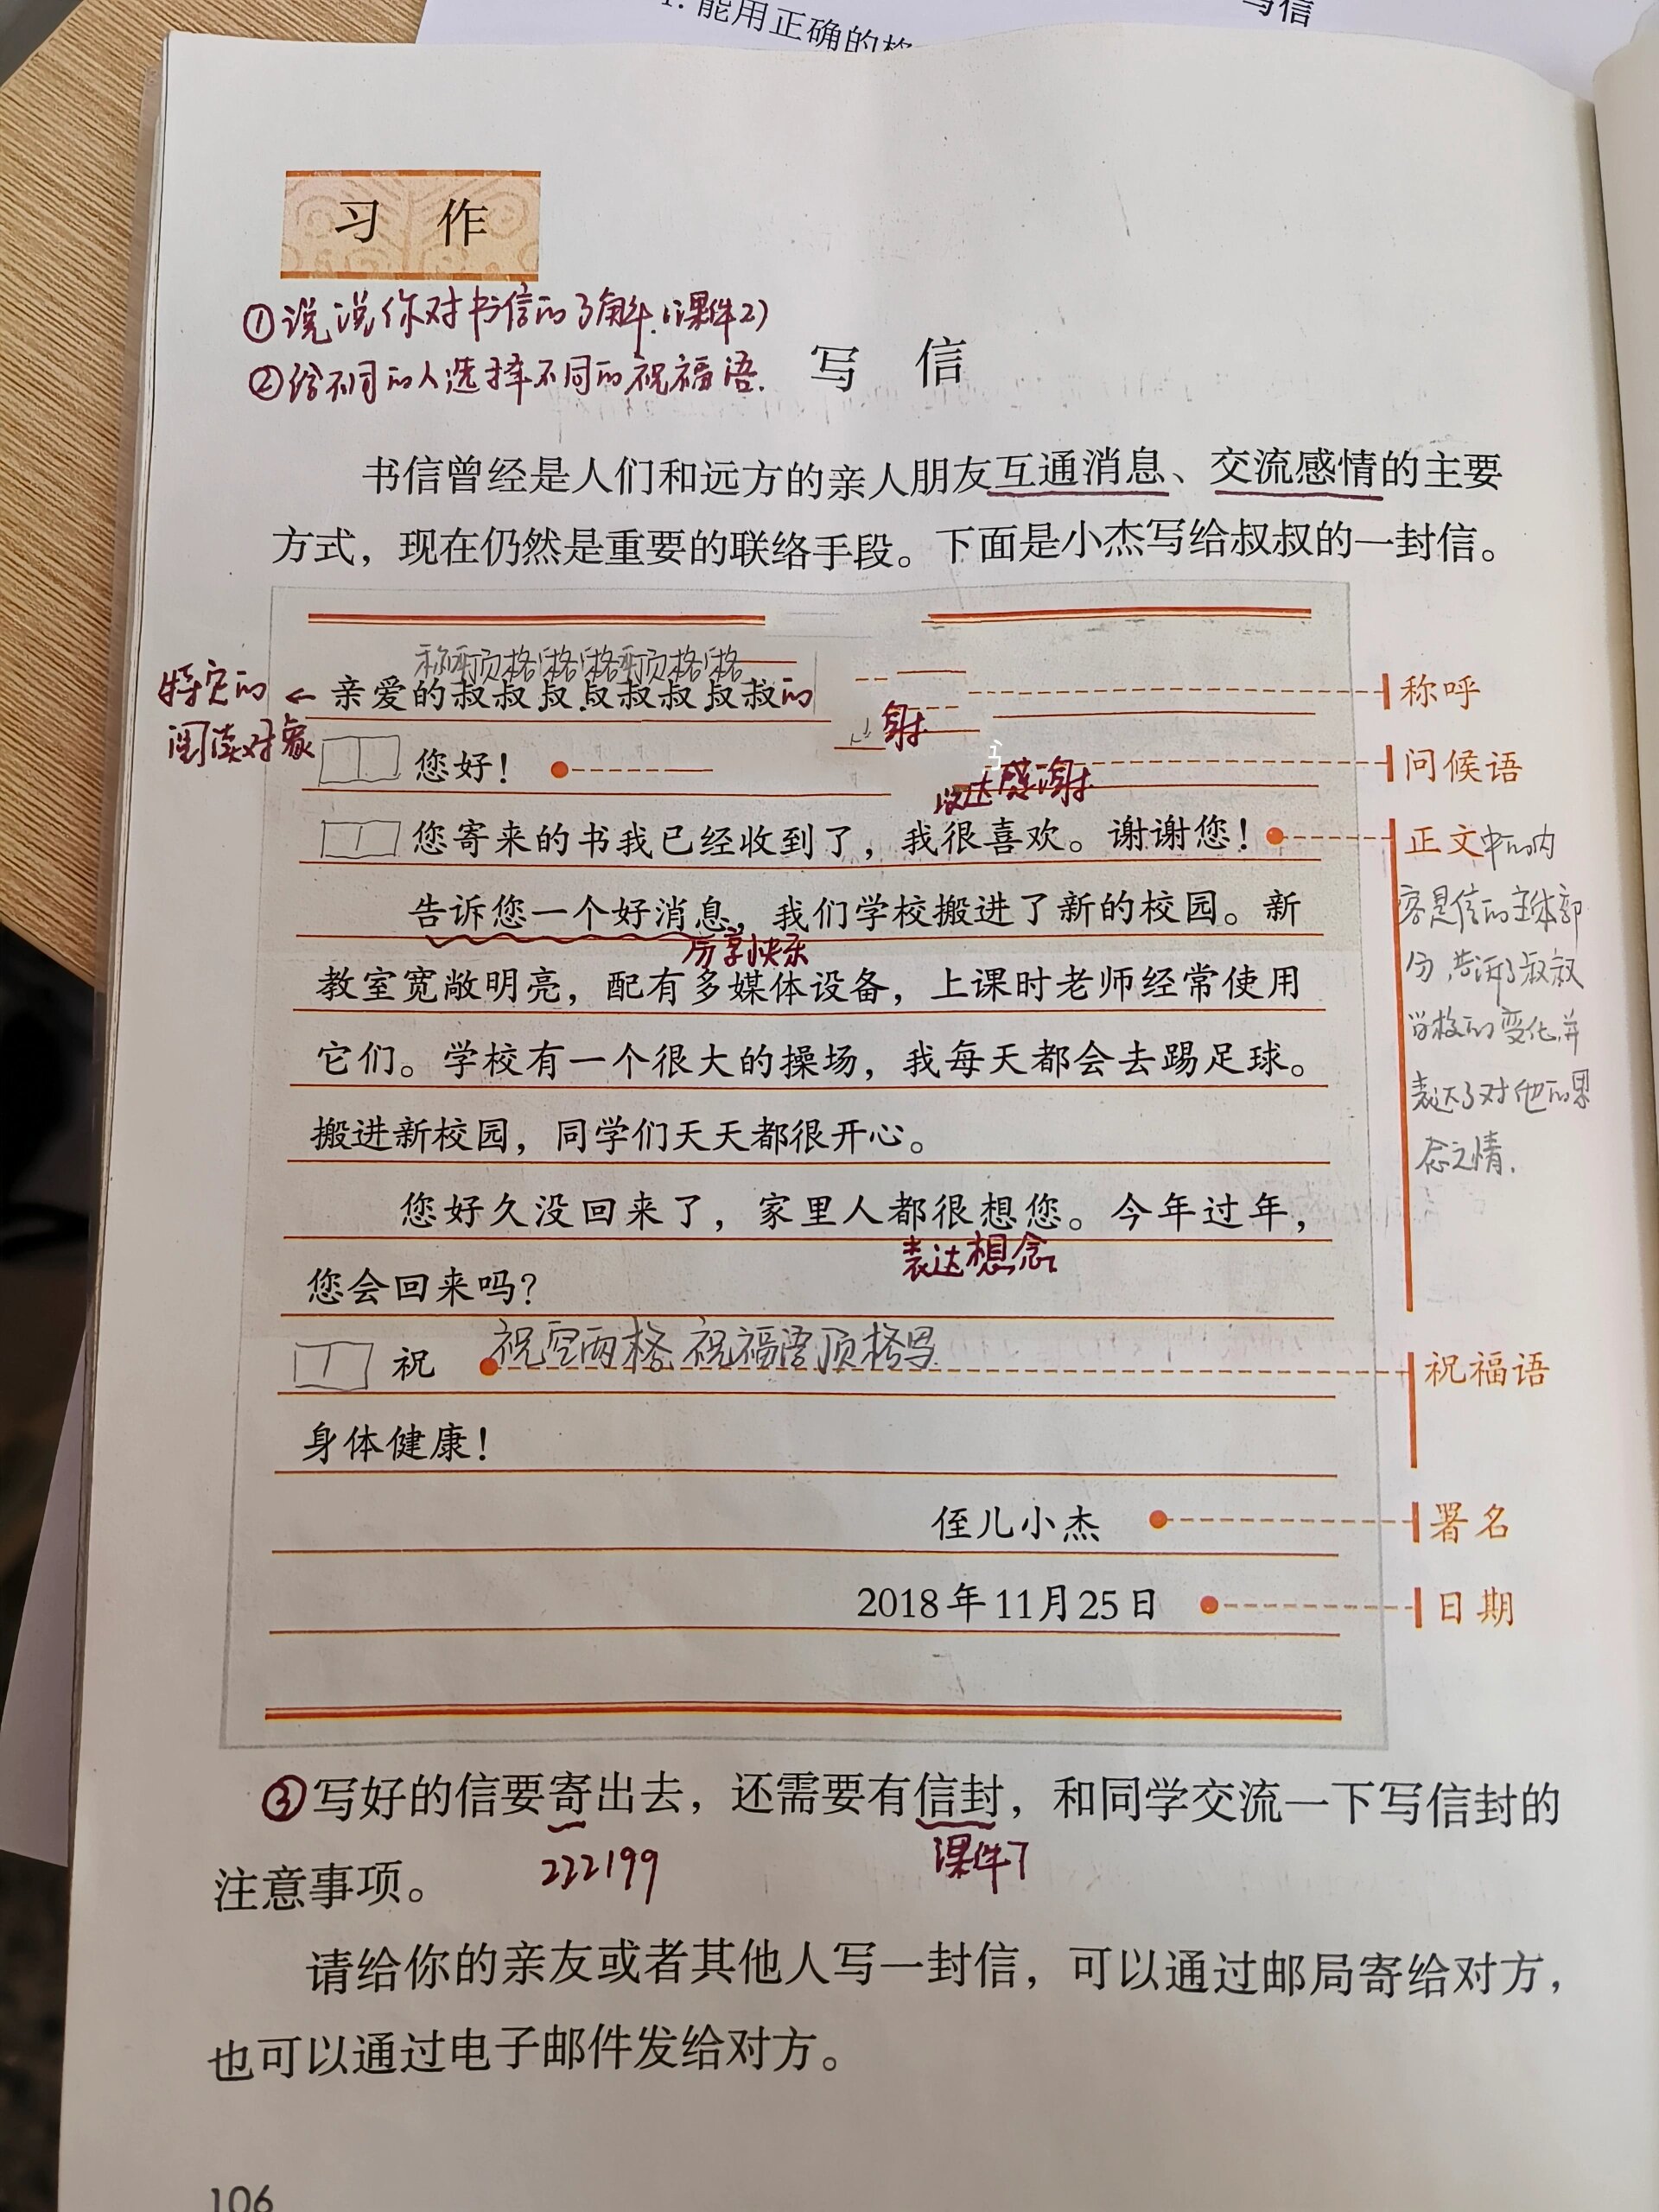 1. 能用正确的格
写信
习 作
①说说你对书信的了解.(课件2)
②给不同的人选择不同的祝福语.
写 信
书信曾经是人们和远方的亲人朋友互通消息、交流感情的主要
方式，现在仍然是重要的联络手段。下面是小杰写给叔叔的一封信。
特定的
阅读对象
←
亲爱的叔叔
称呼
您好！
问候语
感谢
您寄来的书我已经收到了，我很喜欢。谢谢您！
正文中的内
容是信的主体部
分,告诉了叔叔
学校的变化,并
表达了对他的思
念之情.
告诉您一个好消息，我们学校搬进了新的校园。新
分享快乐
教室宽敞明亮，配有多媒体设备，上课时老师经常使用
它们。学校有一个很大的操场，我每天都会去踢足球。
搬进新校园，同学们天天都很开心。
您好久没回来了，家里人都很想您。今年过年，
表达想念
您会回来吗？
祝空两格 祝福语顶格写
祝
祝福语
身体健康！
侄儿小杰
署名
2018年11月25日
日期
③写好的信要寄出去，还需要有信封，和同学交流一下写信封的
222199
课件7
注意事项。
请给你的亲友或者其他人写一封信，可以通过邮局寄给对方，
也可以通过电子邮件发给对方。
106